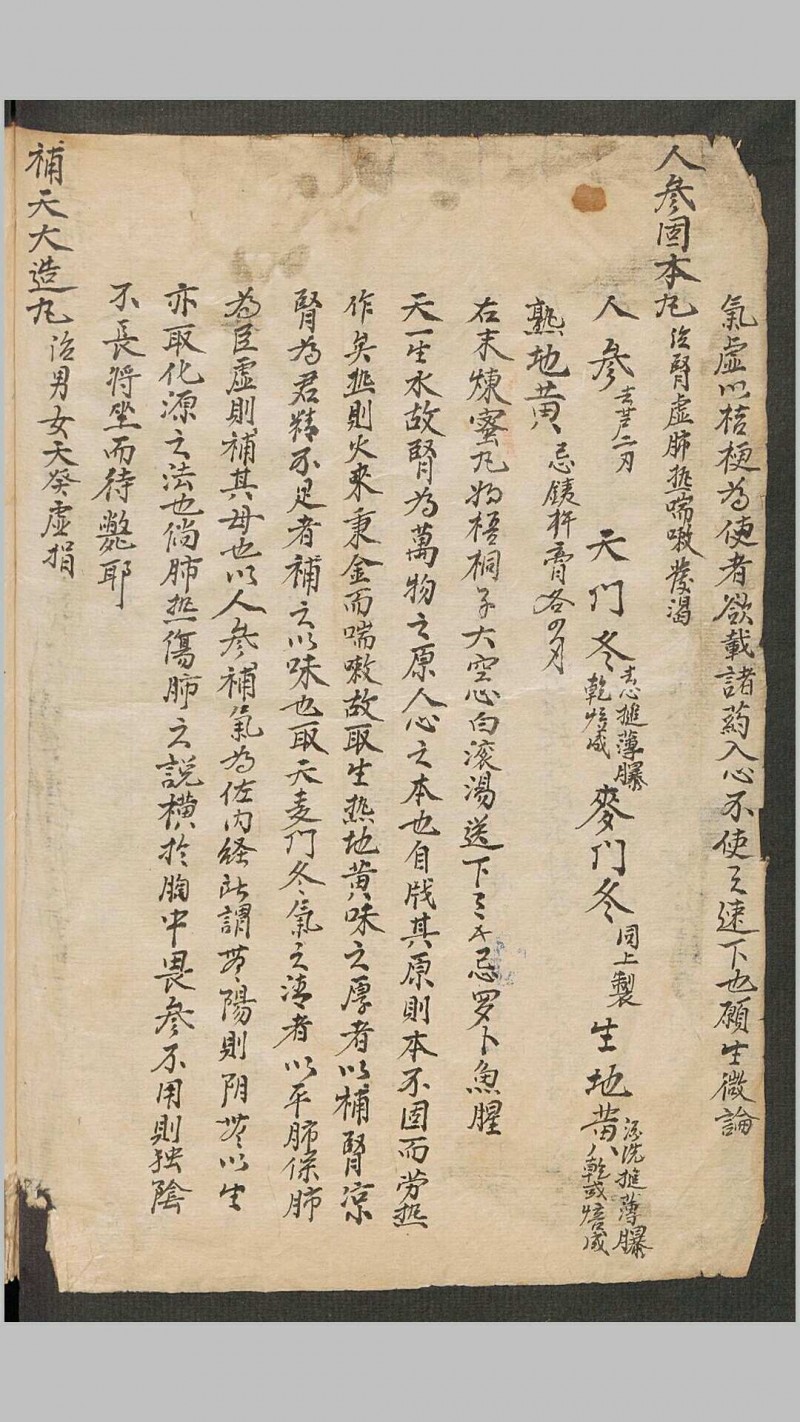 氣虛以桔梗為使者欲載諸药入心不使之速下也願生微論
人參固本丸 治腎虛肺热喘嗽發渴
人參 去芦二刃 天門冬 去心搥薄曝乾焙 麥門冬 同上製 生地黄 酒洗搥薄曝乾或焙
熟地黄 忌銕杵膏各四刃
右末煉蜜丸如梧桐子大空心白滚湯送下三千忌罗卜魚腥
天一生水故腎為萬物之原人心之本也自戕其原則本不固而劳热
作矣热則火來秉金而喘嗽故取生熱地黄味之厚者以補腎涼
腎為君精不足者補之以味也取天麦门冬氣之清者以平肺保肺
為臣虛則補其母也以人參補氣為佐内経所謂無陽則阴無以生
亦取化源之法也倘肺热傷肺之説横於胸中畏參不用則独陰
不長将坐而待斃耶
補天大造丸 治男女天癸虛損